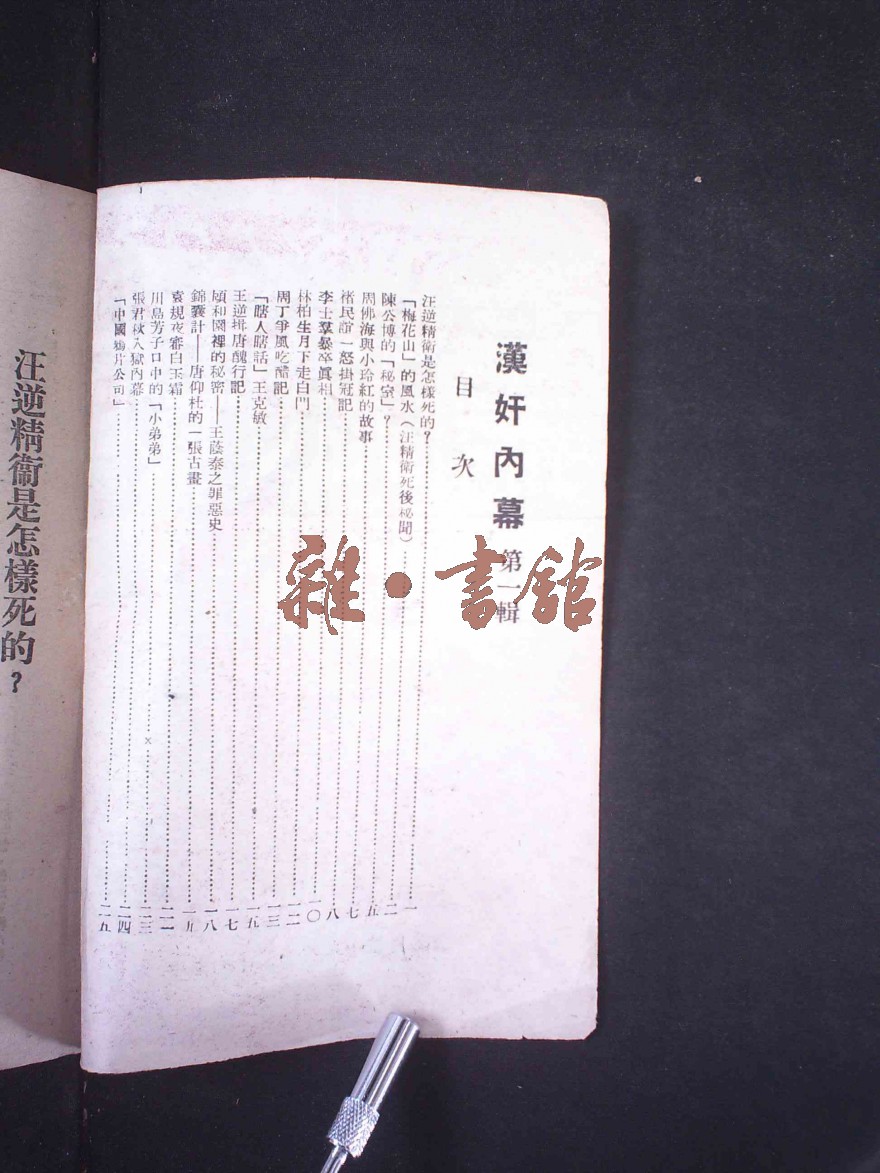 漢奸內幕 第一輯
目次
汪逆精衛是怎樣死的?……一
「梅花山」的風水(汪精衛死後秘聞)……二
陳公博的「秘室」?……五
周佛海與小玲紅的故事……七
褚民誼一怒掛冠記……八
李士羣暴卒眞相……一〇
林柏生月下走白門……一二
周丁爭風吃醋記……一三
「瞎人瞎話」王克敏……一五
王逆揖唐醜行記……一七
頤和園裡的秘密——王蔭泰之罪惡史……一八
錦囊計——唐仰杜的一張古畫……一九
袁規夜審白玉霜……二一
川島芳子口中的「小弟弟」……二三
張君秋入獄內幕……二四
「中國鴉片公司」……二五
汪逆精衞是怎樣死的?
雜·書館